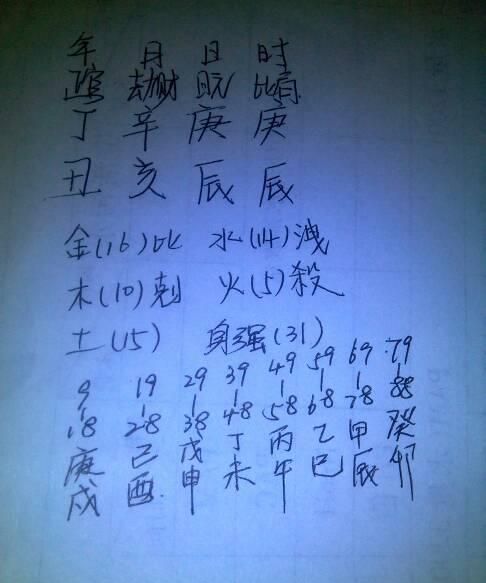 年 月 日 时
正官 劫财 日元 比肩
丁 辛 庚 庚
丑 亥 辰 辰
金(16)比 水(14)洩
木(10)剋 火(5)殺
土(15) 身强(31)
9 19 29 39 49 59 69 79
| | | | | | | |
18 28 38 48 58 68 78 88
庚 己 戊 丁 丙 乙 甲 癸
戌 酉 申 未 午 巳 辰 卯